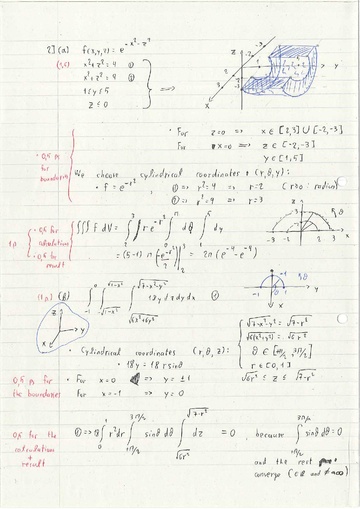 2] (a) f(x,y,z) = e^{-x²-z²}
x²+z² = 4 ①
x²+z² = 9 ②
1≤y≤5
z≤0
⟹
• For z=0 => x ∈ [2,3] ∪ [-2,-3]
• For x=0 => z ∈ [-2,-3]
y ∈ [1,5]
• 0,5 ps for boundaries
We choose cylindrical coordinates (r,θ,y):
• f = e^{-r²}, ① => r²=4 => r=2 (r≥0: radius)
② => r²=9 => r=3
1p
• 0,5 for calculations
• 0,5 for result
∭ F dV = ∫₂³ r e^{-r²} ∫₀^π dθ ∫₁⁵ dy
= (5-1) π (-e^{-r²}/2)|₂³ = 2π (e^{-4} - e^{-9})
(1p) (B) ∫₋₁⁰ ∫ ∫ 18y dz dx dy ①
• Cylindrical coordinates (r, θ, z):
• 18y = 18 r sinθ
√7-x²-y² = √7-r²
√6(x²+y²) = √6 r
θ ∈ [π/2, 3π/2]
r ∈ [0,1]
√6r ≤ z ≤ √7-r²
0,5 ps for the boundaries
• For x=0 => y = ±1
• For x=-1 => y=0
0,5 for the calculation + result
① => ∫₀¹ r² dr ∫_{π/2}^{3π/2} sinθ dθ ∫_{√6r}^{√7-r²} dz = 0, because ∫_{π/2}^{3π/2} sinθ dθ = 0
and the rest
converge (∈ℝ and ≠ ±∞)